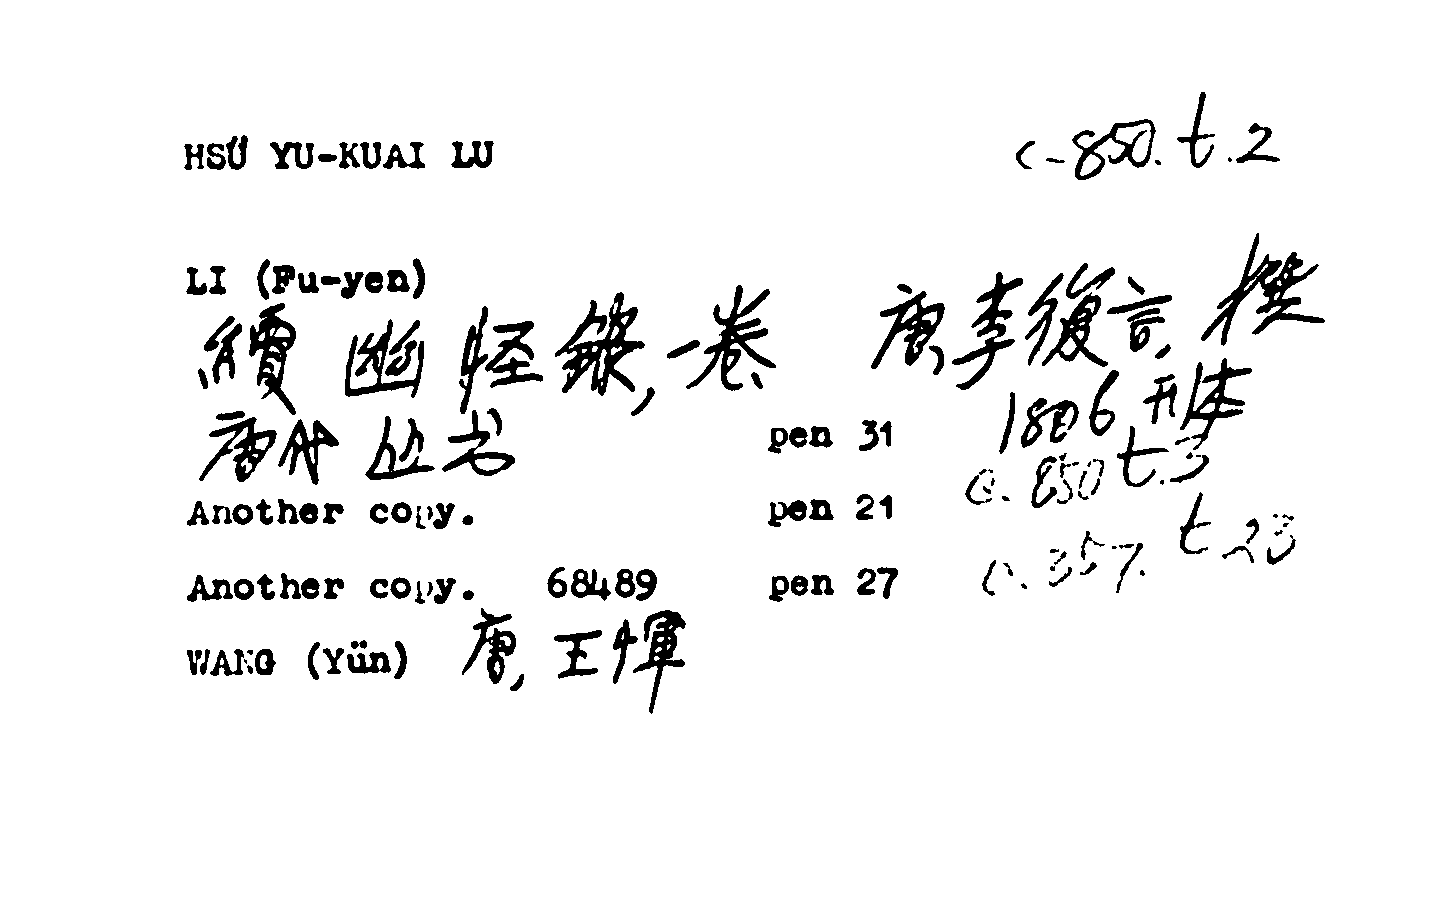 HSÜ YU-KUAI LU c.850.t.2
LI (Fu-yen)
續幽怪錄,一卷 唐李復言,撰
唐代丛书 pen 31 1806刊本
c.850 t.3
Another copy. pen 21
Another copy. 68489 pen 27 c.357. t.23
WANG (Yün) 唐,王惲